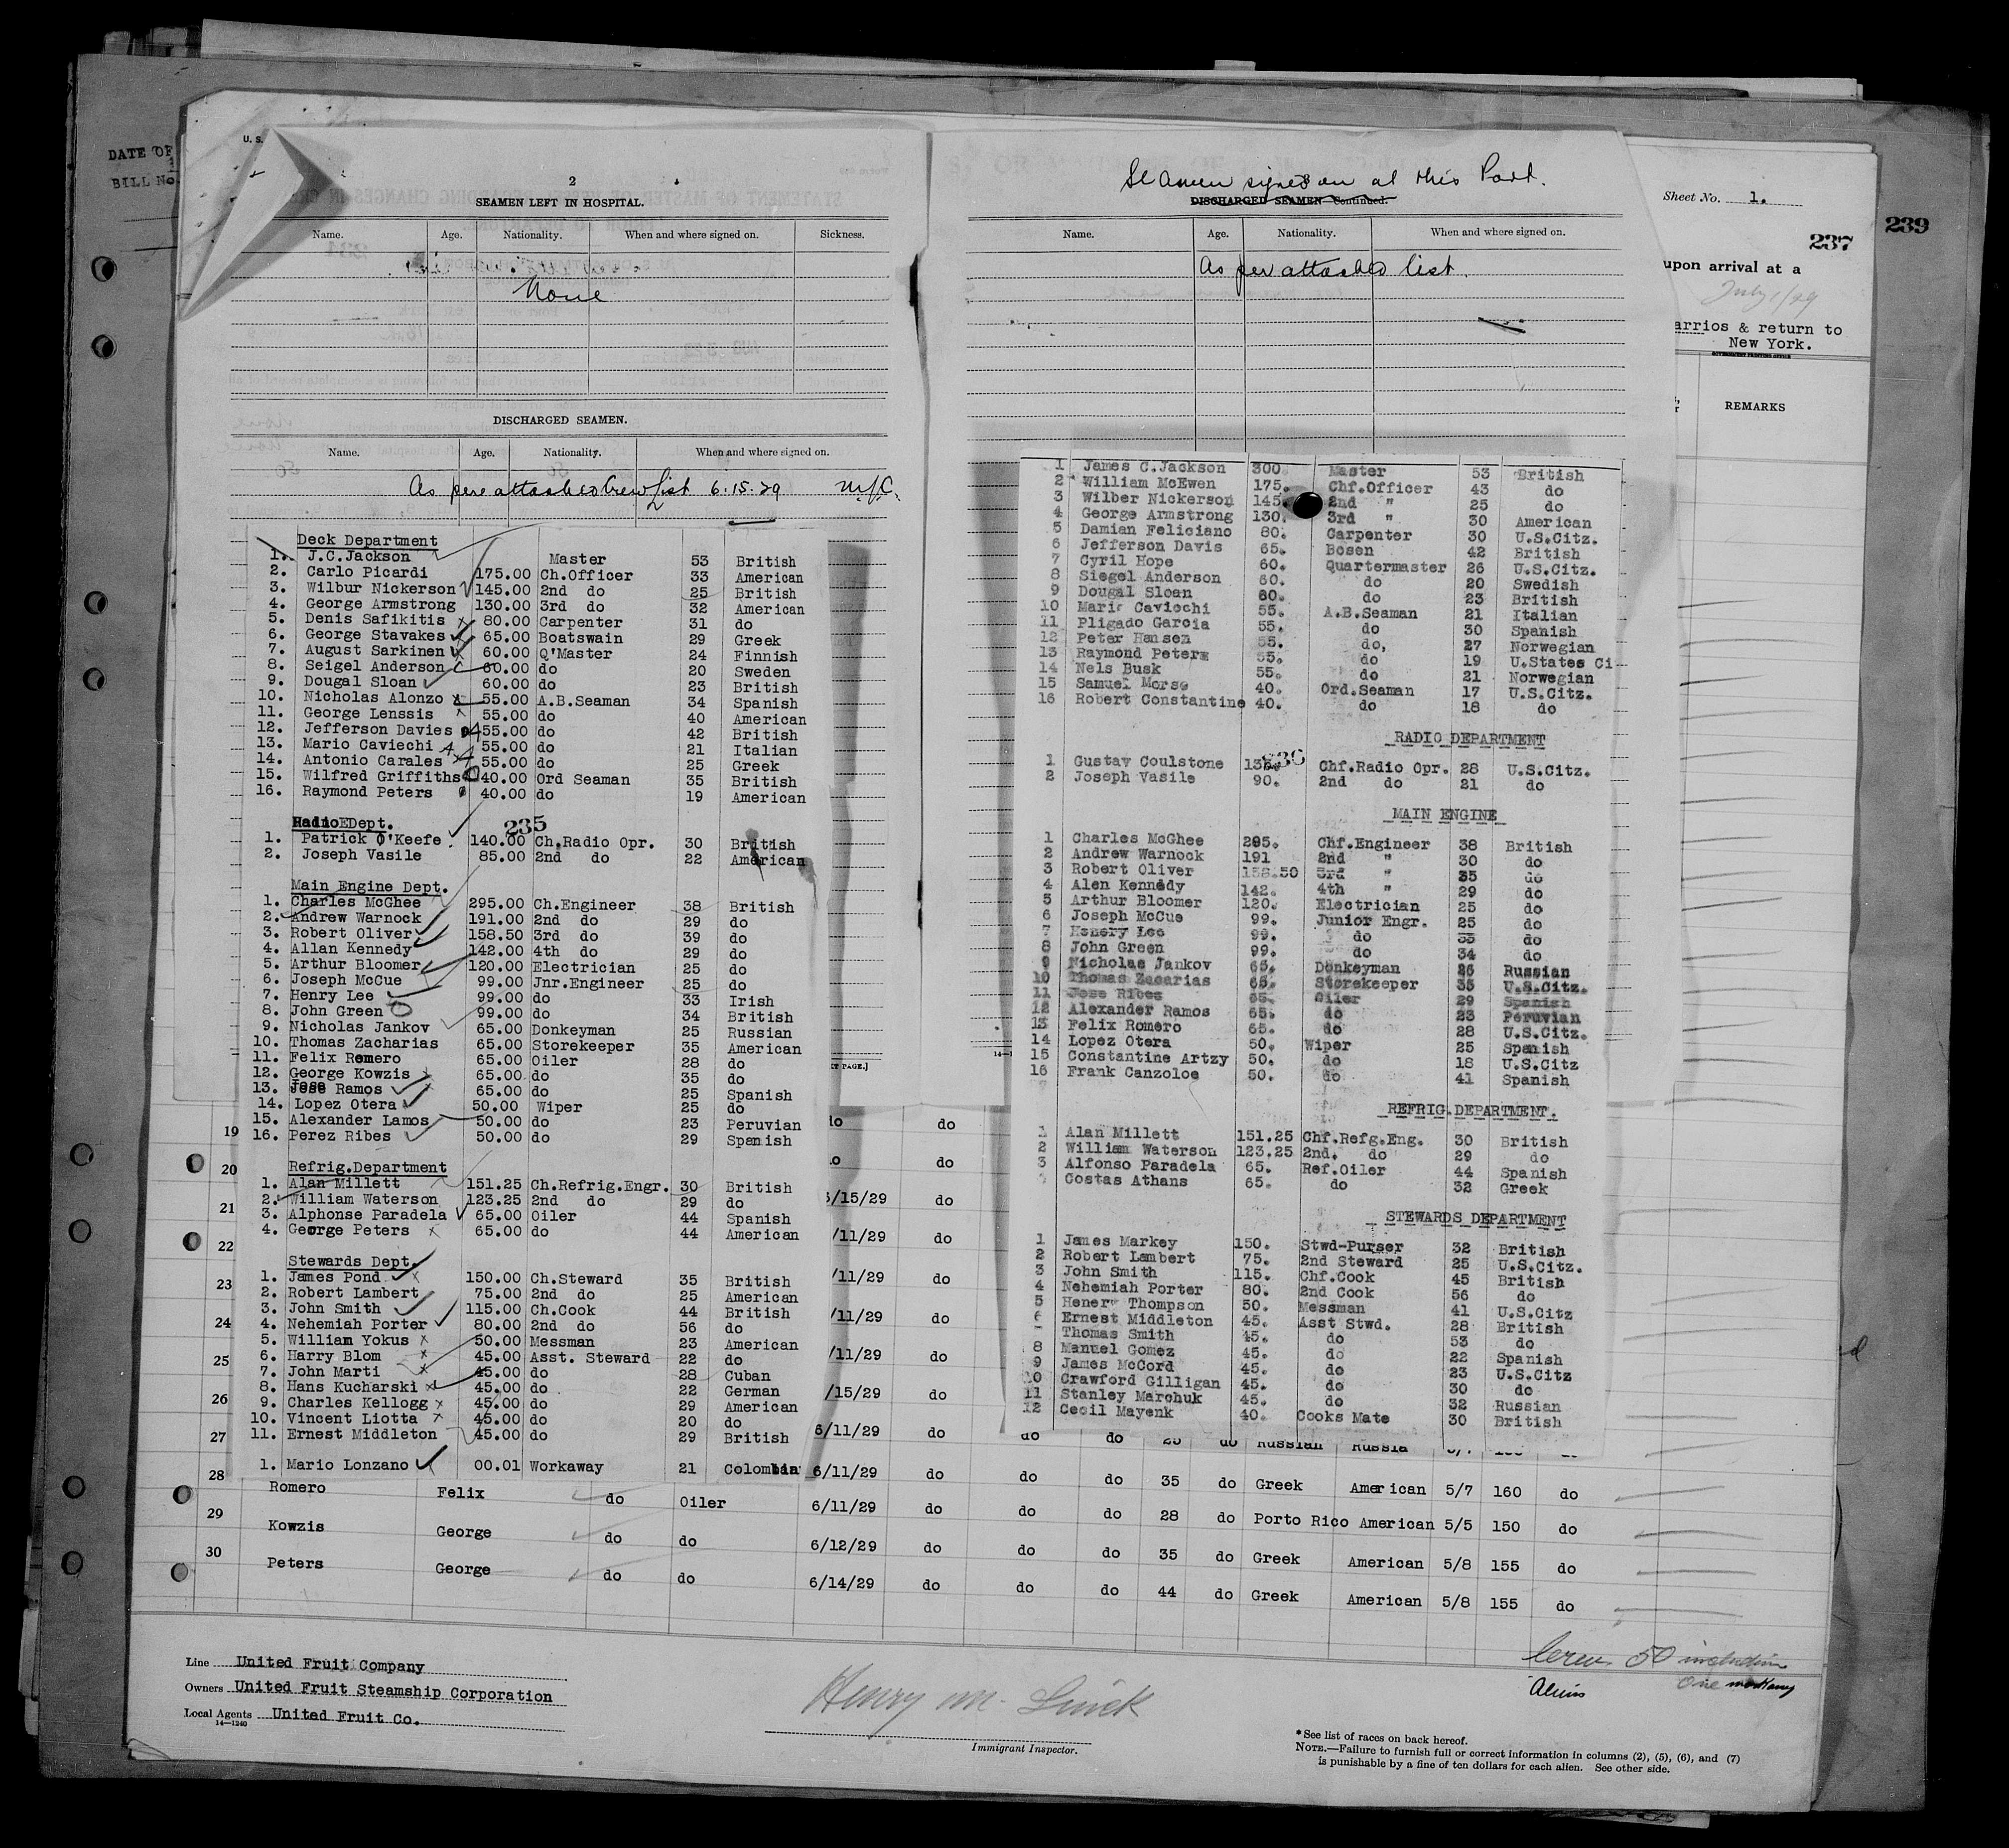 DATE OF
BILL No.
U. S.
2
SEAMEN LEFT IN HOSPITAL.
Name. Age. Nationality. When and where signed on. Sickness.
None
DISCHARGED SEAMEN.
Name. Age. Nationality. When and where signed on.
As per attached Crew list 6.15.29
Deck Department
1. J.C.Jackson Master 53 British
2. Carlo Picardi 175.00 Ch.Officer 33 American
3. Wilbur Nickerson 145.00 2nd do 25 British
4. George Armstrong 130.00 3rd do 32 American
5. Denis Safikitis 80.00 Carpenter 31 do
6. George Stavakes 65.00 Boatswain 29 Greek
7. August Sarkinen 60.00 Q'Master 24 Finnish
8. Seigel Anderson 60.00 do 20 Sweden
9. Dougal Sloan 60.00 do 23 British
10. Nicholas Alonzo 55.00 A.B.Seaman 34 Spanish
11. George Lenssis 55.00 do 40 American
12. Jefferson Davies 55.00 do 42 British
13. Mario Caviechi 55.00 do 21 Italian
14. Antonio Carales 55.00 do 25 Greek
15. Wilfred Griffiths 40.00 Ord Seaman 35 British
16. Raymond Peters 40.00 do 19 American
Radio Dept. 235
1. Patrick O'Keefe 140.00 Ch.Radio Opr. 30 British
2. Joseph Vasile 85.00 2nd do 22 American
Main Engine Dept.
1. Charles McGhee 295.00 Ch.Engineer 38 British
2. Andrew Warnock 191.00 2nd do 29 do
3. Robert Oliver 158.50 3rd do 39 do
4. Allan Kennedy 142.00 4th do 29 do
5. Arthur Bloomer 120.00 Electrician 25 do
6. Joseph McCue 99.00 Jnr.Engineer 25 do
7. Henry Lee 99.00 do 33 Irish
8. John Green 99.00 do 34 British
9. Nicholas Jankov 65.00 Donkeyman 25 Russian
10. Thomas Zacharias 65.00 Storekeeper 35 American
11. Felix Romero 65.00 Oiler 28 do
12. George Kowzis 65.00 do 35 do
13. Jose Ramos 65.00 do 25 Spanish
14. Lopez Otera 50.00 Wiper 25 do
15. Alexander Lamos 50.00 do 23 Peruvian
16. Perez Ribes 50.00 do 29 Spanish
Refrig.Department
1. Alan Millett 151.25 Ch.Refrig.Engr. 30 British
2. William Waterson 123.25 2nd do 29 do
3. Alphonse Paradela 65.00 Oiler 44 Spanish
4. George Peters 65.00 do 44 American
Stewards Dept.
1. James Pond 150.00 Ch.Steward 35 British
2. Robert Lambert 75.00 2nd do 25 American
3. John Smith 115.00 Ch.Cook 44 British
4. Nehemiah Porter 80.00 2nd do 56 do
5. William Yokus 50.00 Messman 23 American
6. Harry Blom 45.00 Asst. Steward 22 do
7. John Marti 45.00 do 28 Cuban
8. Hans Kucharski 45.00 do 22 German
9. Charles Kellogg 45.00 do 29 American
10. Vincent Liotta 45.00 do 20 do
11. Ernest Middleton 45.00 do 29 British
1. Mario Lonzano 00.01 Workaway 21 Colombia
Seamen signed on at this Port.
DISCHARGED SEAMEN—Continued.
Name. Age. Nationality. When and where signed on.
As per attached list.
1 James C.Jackson 300. Master 53 British
2 William McEwen 175. Chf.Officer 43 do
3 Wilber Nickerson 145. 2nd " 25 do
4 George Armstrong 130. 3rd " 30 American
5 Damian Feliciano 80. Carpenter 30 U.S.Citz.
6 Jefferson Davis 65. Bosen 42 British
7 Cyril Hope 60. Quartermaster 26 U.S.Citz.
8 Siegel Anderson 60. do 20 Swedish
9 Dougal Sloan 60. do 23 British
10 Mario Caviochi 55. A.B.Seaman 21 Italian
11 Pligado Garcia 55. do 30 Spanish
12 Peter Hansen 55. do, 27 Norwegian
13 Raymond Peters 55. do 19 U.States Ci
14 Nels Busk 55. do 21 Norwegian
15 Samuel Morse 40. Ord.Seaman 17 U.S.Citz.
16 Robert Constantine 40. do 18 do
RADIO DEPARTMENT
1 Gustav Coulstone Chf.Radio Opr. 28 U.S.Citz.
2 Joseph Vasile 90. 2nd do 21 do
MAIN ENGINE
1 Charles McGhee 295. Chf.Engineer 38 British
2 Andrew Warnock 191 2nd " 30 do
3 Robert Oliver 158.50 3rd " 35 do
4 Alen Kennedy 142. 4th " 29 do
5 Arthur Bloomer 120. Electrician 25 do
6 Joseph McCue 99. Junior Engr. 25 do
7 Henery Lee 99. do 35 do
8 John Green 99. do 34 do
9 Nicholas Jankov 65. Donkeyman 26 Russian
10 Thomas Zacarias 65. Storekeeper 35 U.S.Citz.
11 Jose Ribes 65. Oiler 29 Spanish
12 Alexander Ramos 65. do 23 Peruvian
13 Felix Romero 65. do 28 U.S.Citz.
14 Lopez Otera 50. Wiper 25 Spanish
15 Constantine Artzy 50. do 18 U.S.Citz
16 Frank Canzoloe 50. do 41 Spanish
REFRIG.DEPARTMENT.
1 Alan Millett 151.25 Chf.Refg.Eng. 30 British
2 William Waterson 123.25 2nd. do 29 do
3 Alfonso Paradela 65. Ref.Oiler 44 Spanish
Costas Athans 65. do 32 Greek
STEWARDS DEPARTMENT
1 James Markey 150. Stwd-Purser 32 British
2 Robert Lambert 75. 2nd Steward 25 U.S.Citz.
3 John Smith 115. Chf.Cook 45 British
4 Nehemiah Porter 80. 2nd Cook 56 do
5 Henery Thompson 50. Messman 41 U.S.Citz
6 Ernest Middleton 45. Asst Stwd. 28 British
Thomas Smith 45. do 53 do
8 Manuel Gomez 45. do 22 Spanish
9 James McCord 45. do 23 U.S.Citz
10 Crawford Gilligan 45. do 30 do
11 Stanley Marchuk 45. do 32 Russian
12 Cecil Mayenk 40. Cooks Mate 30 British
Sheet No. 1.
237 239
upon arrival at a
July 1/29
arrios & return to
New York.
GOVERNMENT PRINTING OFFICE
REMARKS
19 do do
20 do
21 /15/29 do
22 /11/29 do
23 /11/29 do
24 /11/29 do
25 /11/29 do
26 /15/29 do
27 6/11/29 do do do 25 do Russian Russia
28 6/11/29 do do do 35 do Greek American 5/7 160 do
Romero Felix do Oiler 6/11/29 do do do 28 do Porto Rico American 5/5 150 do
29 Kowzis George do do 6/12/29 do do do 35 do Greek American 5/8 155 do
30 Peters George do do 6/14/29 do do do 44 do Greek American 5/8 155 do
Line United Fruit Company
Owners United Fruit Steamship Corporation
Local Agents United Fruit Co.
14—1240
Immigrant Inspector.
Crew 50 including
Aliens One
*See list of races on back hereof.
NOTE.—Failure to furnish full or correct information in columns (2), (5), (6), and (7)
is punishable by a fine of ten dollars for each alien. See other side.